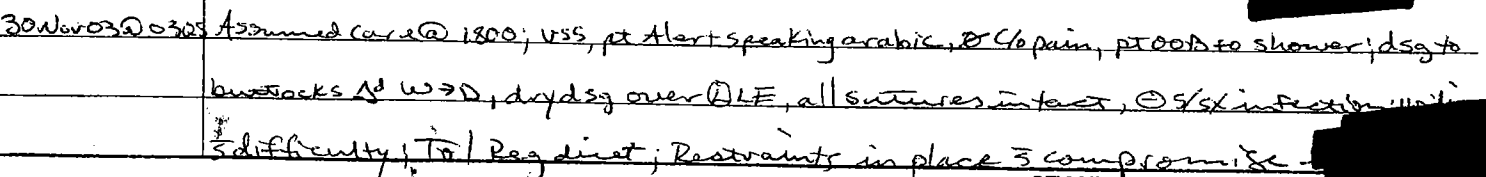 30Nov03@0325 Assumed care @ 1800; VSS, pt Alert speaking arabic, ∅ c/o pain, pt OOB to shower; dsg to
buttocks Δd W→D, dry dsg over LE, all sutures intact, ⊖ s/sx infection
s̄ difficulty; Tol Reg diet; Restraints in place s̄ compromise